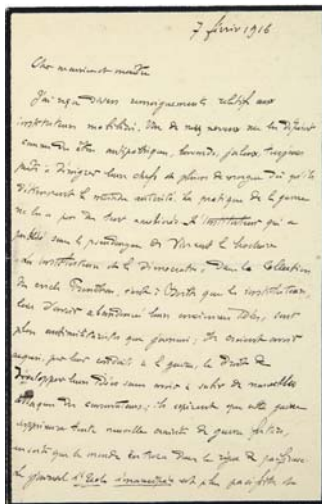 7 février 1916
Cher monsieur et maître
J'ai reçu divers renseignements relatifs aux
instituteurs mobilisés. Un de mes neveux me les dépeint
comme étant antipathiques, jaloux, toujours
prêts à dénigrer leurs chefs et pleins de morgue dès qu'ils
détiennent la moindre autorité. La pratique de la guerre
ne les a pas du tout améliorés. L'instituteur qui a
publié sous le pseudonyme de la brochure
les instituteurs et la Démocratie, dans la collection
du écrit à que les instituteurs,
loin d'avoir abandonné leurs anciennes idées, sont
plus antimilitaristes que jamais; ils croient avoir
acquis, par leur conduite à la guerre, le droit de
développer leurs idées sans avoir à subir de nouvelles
attaques des conservateurs; ils espèrent que cette guerre
supprimera toute nouvelle crainte de guerre future,
en sorte que le monde entrera dans la
Le journal l'École émancipée est plus pacifiste